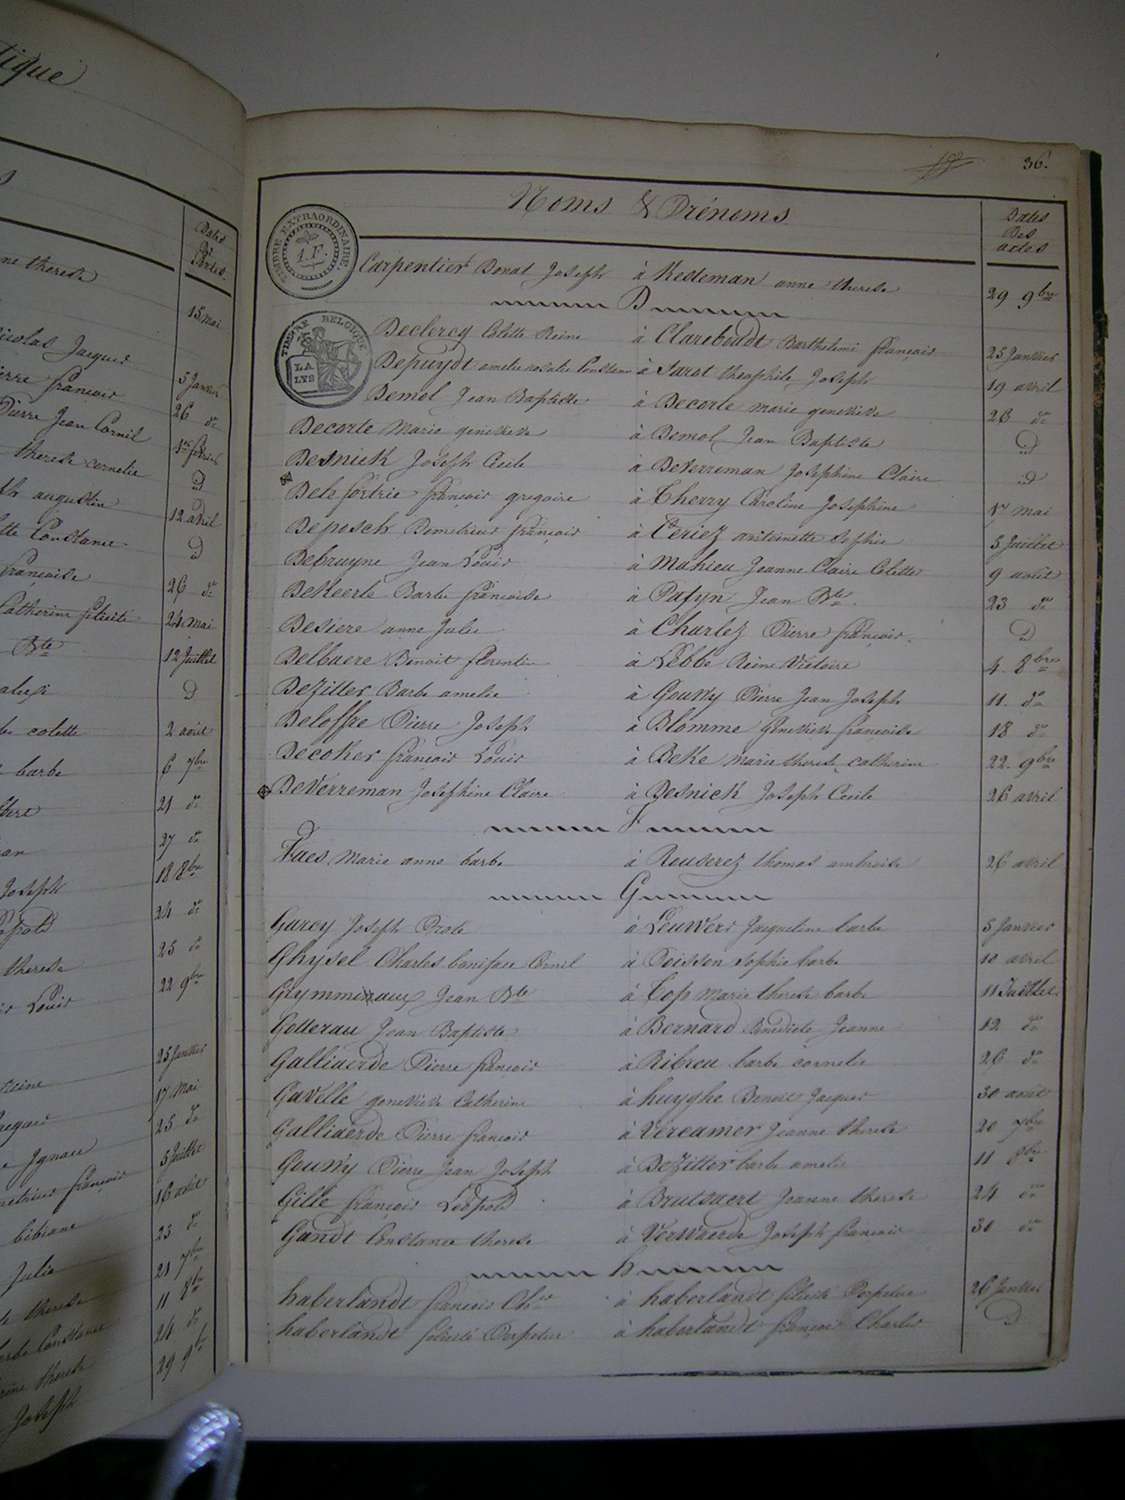 tique
Dates
ne therese
15 mai
icolas Jacques
5 Janvier
ierre françois
26 do
Pierre Jean Cornil
1er février
therese cornelie
D
th augustin
12 avril
tte Constance
D
françoise
26 do
Catherine félicité
24 mai
Bte
12 Juillet
D
colette
2 août
barbe
6 7bre
21 do
27 do
Joseph
18 8bre
24 do
therese
25 do
Louis
22 9bre
25 Janvier
reine
17 Mai
25 do
Ignace
5 Juillet
françois
16 août
bibiane
23 do
Julie
21 7bre
therese
11 8bre
Constance
24 do
therese
29 9bre
Joseph
36.
Noms & Prénoms
Dates
Des
actes
TIMBRE EXTRAORDINAIRE.
1.F.
Carpentier Donat Joseph à Kesteman anne therese 29 9bre
D
TIMBRE BELGIQUE
LA
LYS
Declercq Colette Reine à Clareboudt Barthelemi françois 25 Janvier
Depuydt amelie rosalie Constance à Tarot theophile Joseph 19 avril
Demol Jean Baptiste à Decorte marie genevieve 26 do
Decorte Marie genevieve à Demol Jean Baptiste D
Desnick Joseph Cecile à Deverreman Josephine Claire D
Delefortrie françois gregoire à Cherry Caroline Josephine 1er mai
Deposch Demetrius françois à Teriez antoinette Sophie 5 Juillet
Debruyne Jean Louis à Mahieu Jeanne Claire Colette 9 août
Dekeerle Barbe françoise à Patyn Jean Bte 23 do
Desiere anne Julie à Charlez Pierre françois D
Delbaere Benoit florentin à Lebbe Reine Victoire 4 8bre
Dezitter Barbe amelie à Gouwy Pierre Jean Joseph 11 do
Deloffre Pierre Joseph à Blomme genevieve françoise 18 do
Decoker françois Louis à Deke marie therese catherine 22 9bre
Deverreman Josephine Claire à Desnick Joseph Cecile 26 avril
F
Faes Marie anne barbe à Reuserez thomas ambroise 26 avril
G
Garey Joseph à Leuwers Jacqueline barbe 5 Janvier
Ghysel Charles boniface Cornil à Poisson Sophie barbe 10 avril
Grymminaux Jean Bte à Top Marie therese barbe 11 Juillet
Gotterau Jean Baptiste à Bernard Benedicte Jeanne 12 do
Galliaerde Pierre françois à Ribreu barbe cornelie 26 do
Gavelle genevieve Catherine à huyghe Benoit Jacques 30 août
Galliaerde Pierre françois à Vereamer Jeanne therese 20 7bre
Gouwy Pierre Jean Joseph à Dezitter barbe amelie 11 8bre
Gille françois Léopold à Brutsaert Jeanne therese 24 do
Gandt Constance therese à Verwaerde Joseph françois 30 do
h
haberlandt françois Chs à haberlandt félicité Perpetue 26 Janvier
haberlandt félicité Perpetue à haberlandt françois Charles D